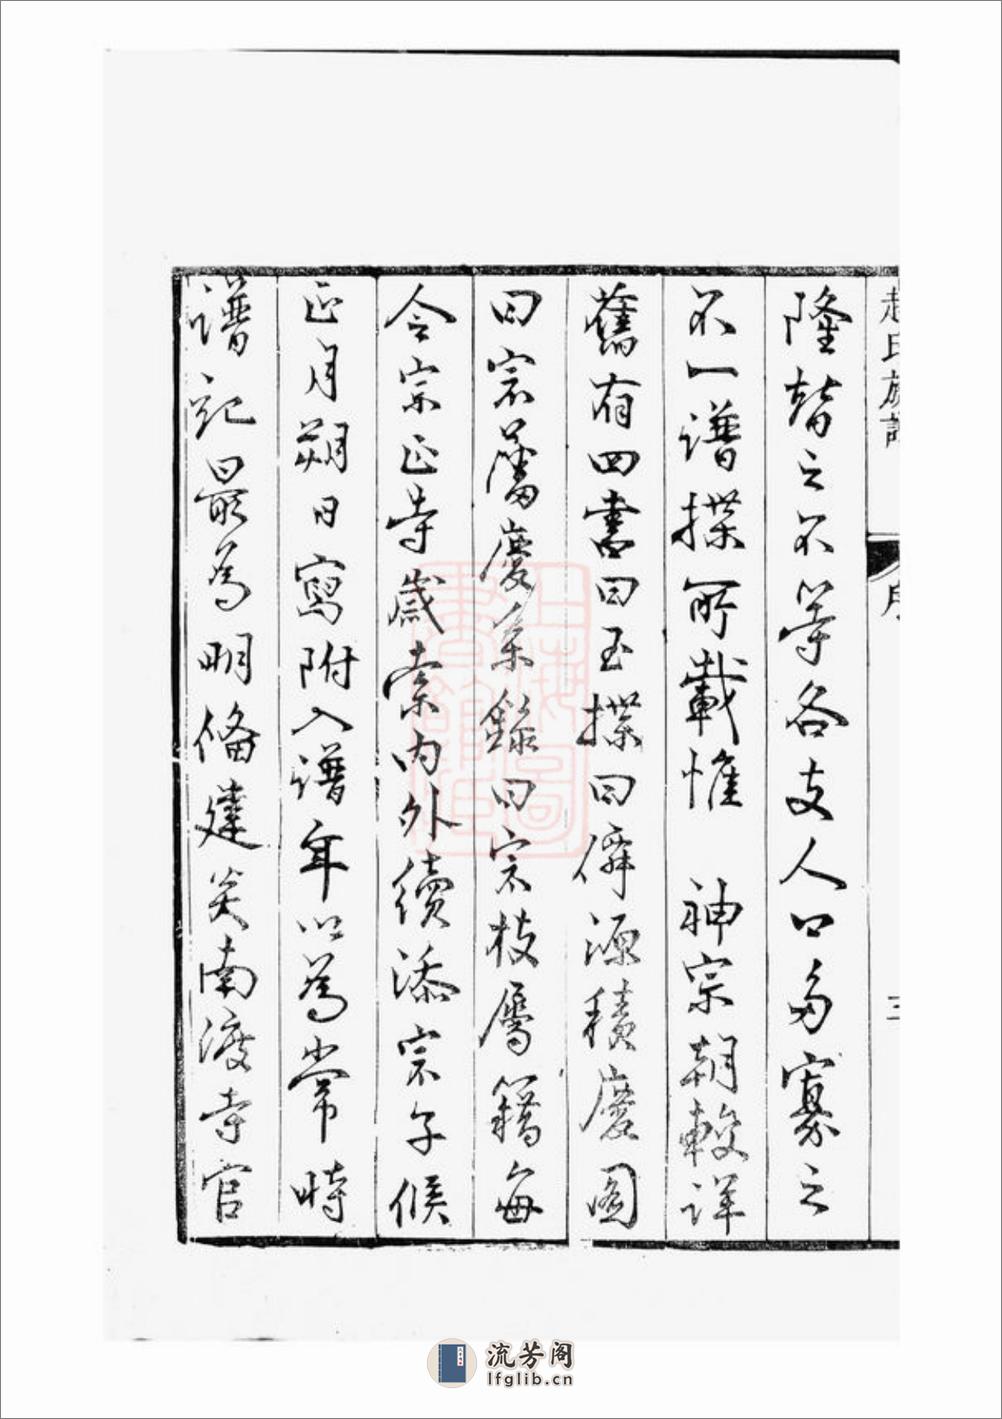 趙氏族譜
序
三
隆替之不等各支人口多寡之
不一譜揲所載惟 神宗朝較詳
舊有四書曰玉揲曰僊源積慶圖
曰宗藩慶系錄曰宗枝屬籍每
令宗正寺歲索內外續添宗子候
正月朔日寫附入譜年以為常時
譜記最為明俻建炎南渡寺官
上海圖書館藏
流芳阁
lfglib.cn